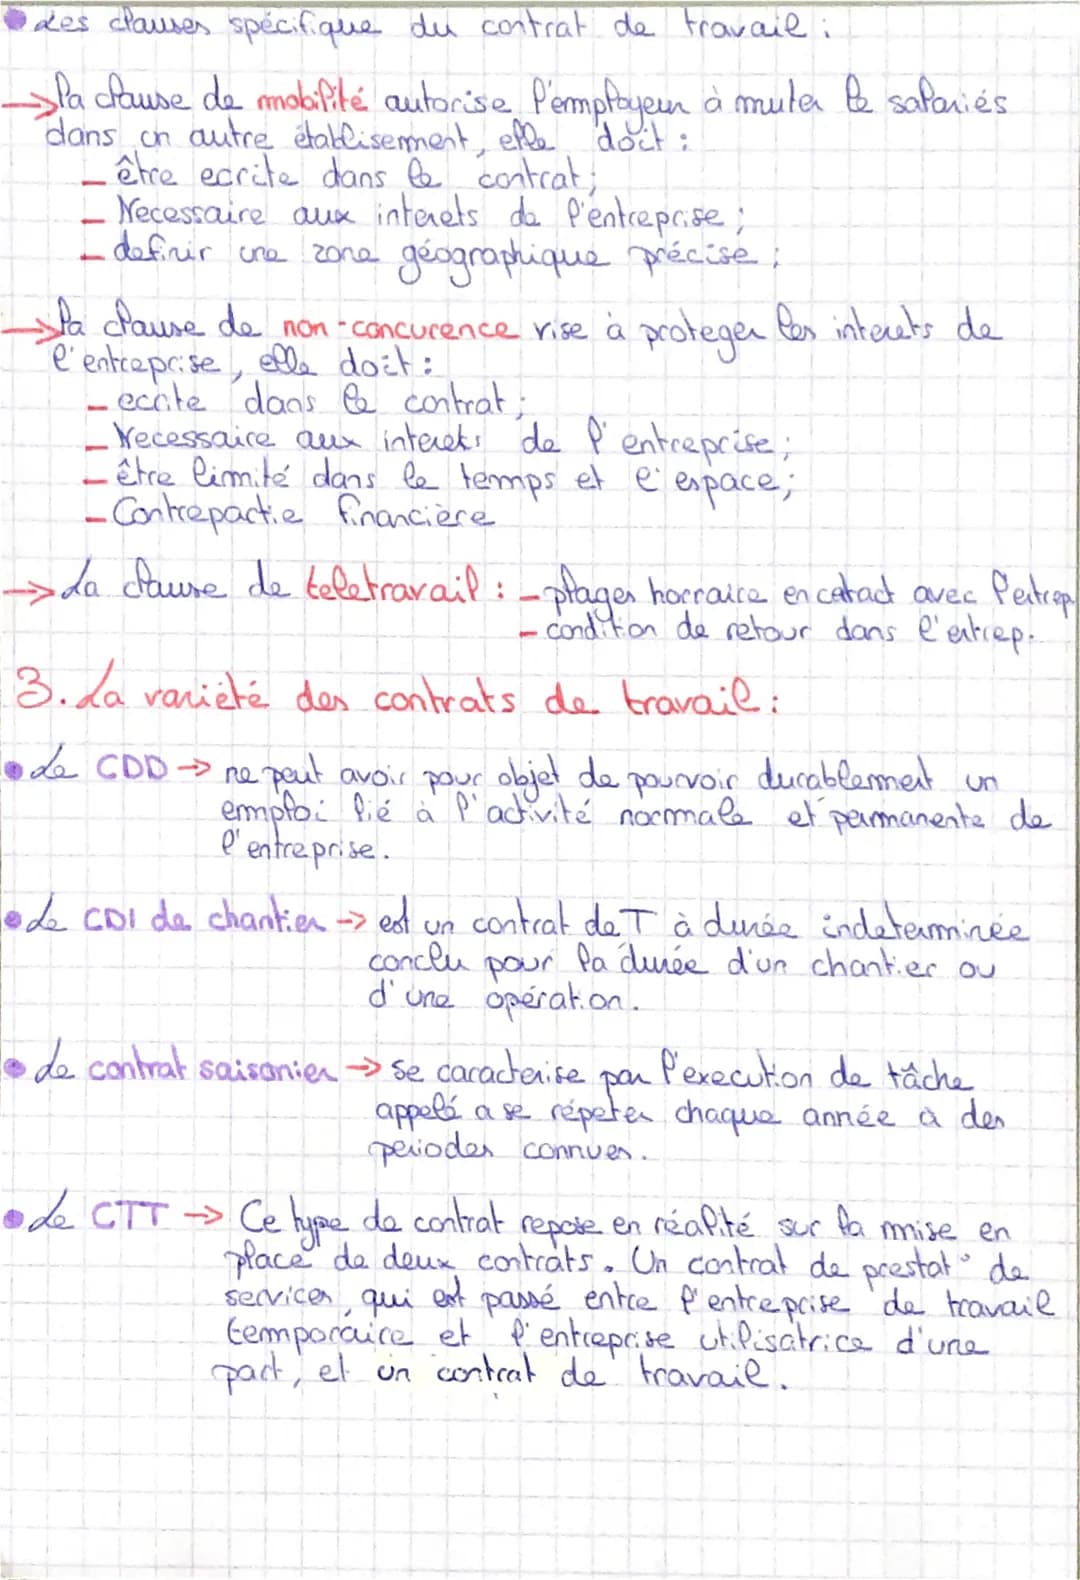 • Les clauses spécifique du contrat de travail :
→ la clause de mobilité autorise l'employeur à muter le salariés
dans un autre établisement, elle doit :
- être ecrite dans le contrat ;
- Necessaire aux interets de l'entreprise ;
- definir une zone géographique précise ;
→ la clause de non-concurence vise à proteger les interets de
l'entreprise, elle doit :
- ecrite dans le contrat ;
- Necessaire aux interets de l'entreprise ;
- être limité dans le temps et l'espace ;
- Contrepartie financière
→ La clause de teletravail : - plages horraire en catact avec l'entrep
- condition de retour dans l'entrep.
3. La variété des contrats de travail :
• Le CDD → ne peut avoir pour objet de pourvoir durablement un
emploi lié à l'activité normale et permanente de
l'entreprise.
• Le CDI de chantier → est un contrat de T à durée indeterminée
conclu pour la durée d'un chantier ou
d'une opération.
• Le contrat saisonier → Se caracterise par l'execution de tâche
appelé a se répeter chaque année à des
periodes connues.
• Le CTT → Ce type de contrat repose en réalité sur la mise en
place de deux contrats. Un contrat de prestat° de
services, qui est passé entre l'entreprise de travail
temporaire et l'entreprise utilisatrice d'une
part, et un contrat de travail.